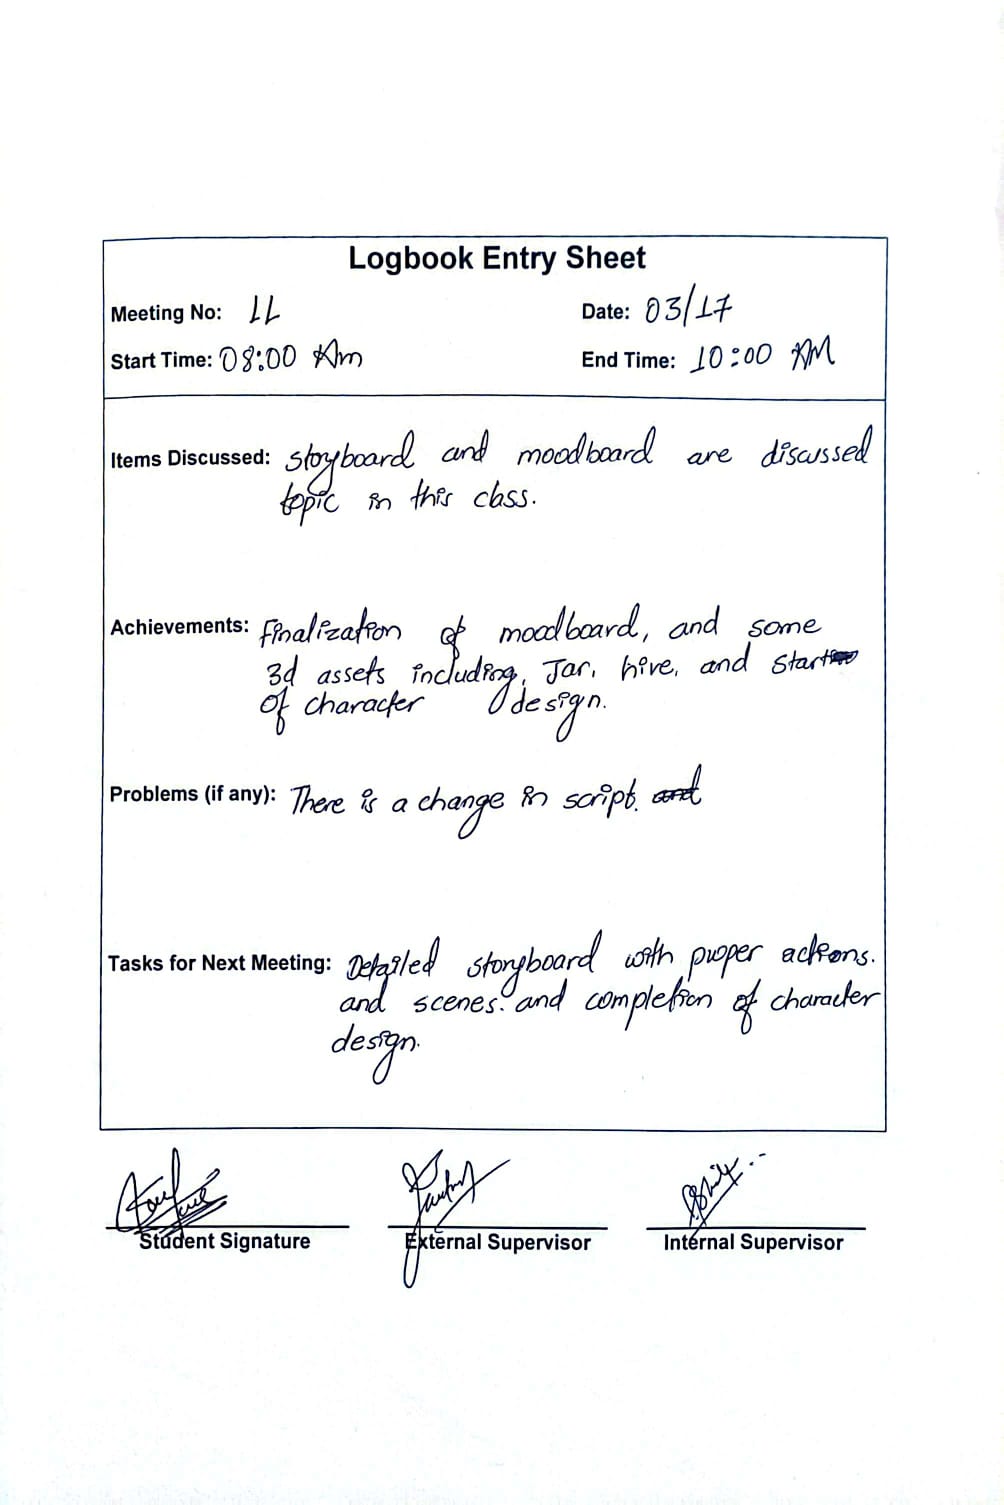 Logbook Entry Sheet
Meeting No: 11 Date: 03/17
Start Time: 08:00 Am End Time: 10:00 AM
Items Discussed: storyboard and moodboard are discussed
topic in this class.
Achievements: Finalization of moodboard, and some
3d assets including, Jar, hive, and start
of character design.
Problems (if any): There is a change in script.
Tasks for Next Meeting: Detailed storyboard with proper actions.
and scenes. and completion of character
design.
Student Signature External Supervisor Internal Supervisor